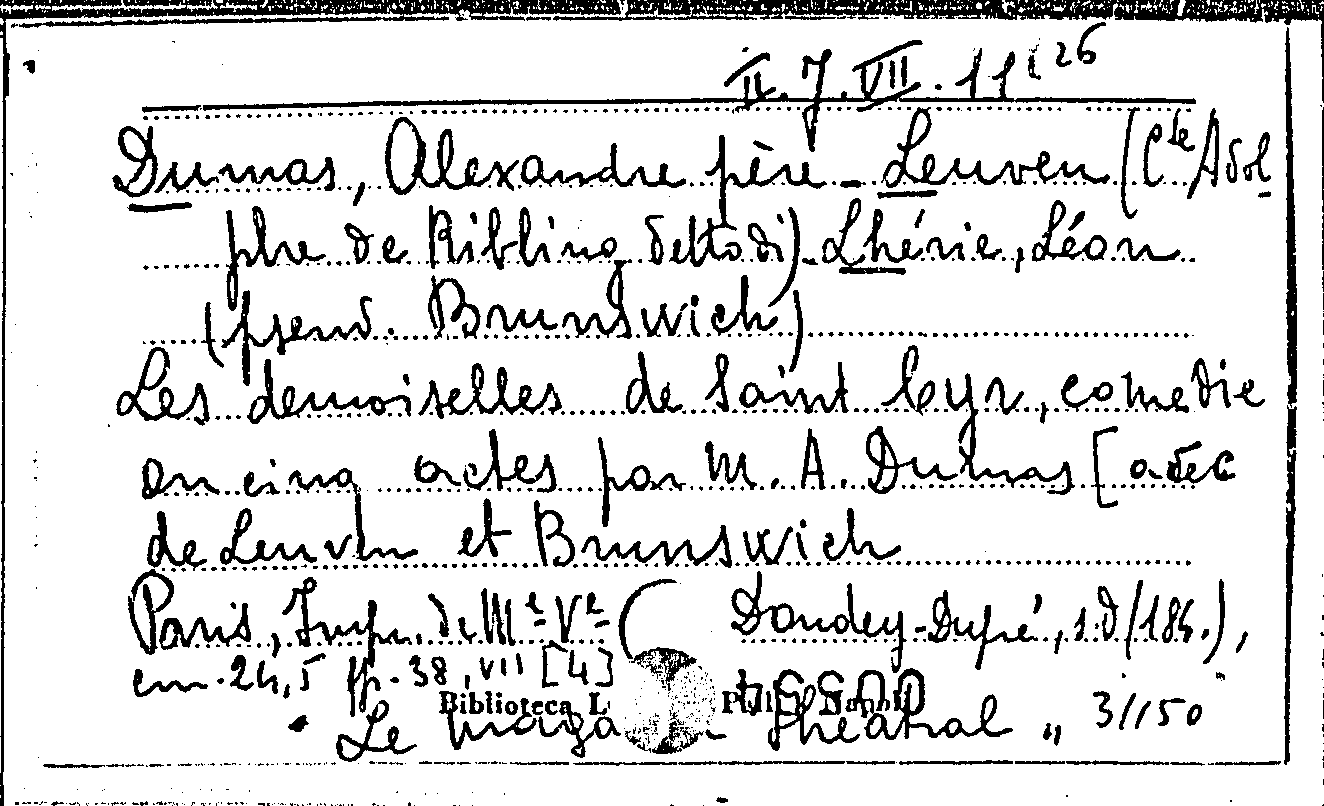 II. 7. VII. 11 (26
Dumas, Alexandre père - Leuven (Cte Adol
phe de Ribbing detto di) - Lhérie, Léon
(pseud. Brunswich)
Les demoiselles de Saint Cyr, comedie
en cinq actes par M. A. Dumas [avec
de Leuven et Brunswich
Paris, Imp. de Me Ve Dondey-Dupré, s.d (184.),
cm. 24,5 pp. 38, VII [4]
Biblioteca L
" Le maga théatral " 31150